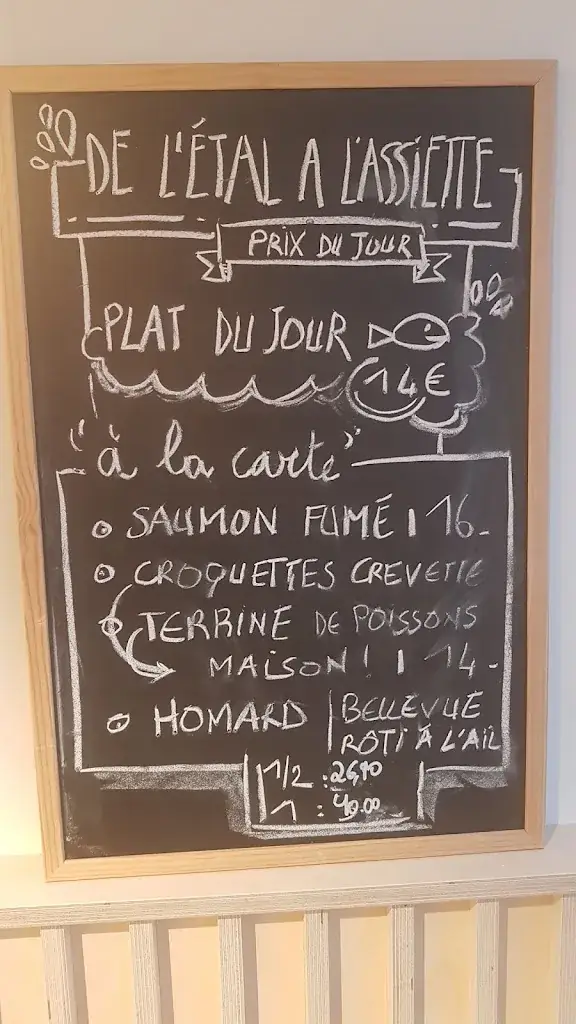 DE L'ÉTAL A L'ASSIETTE
PRIX DU JOUR
PLAT DU JOUR
14€
à la carte
SAUMON FUMÉ 16.-
CROQUETTES CREVETTE
TERRINE DE POISSONS
MAISON! 14.-
HOMARD BELLEVUE
RÔTI À L'AIL
1/2 :
1 : 49.00